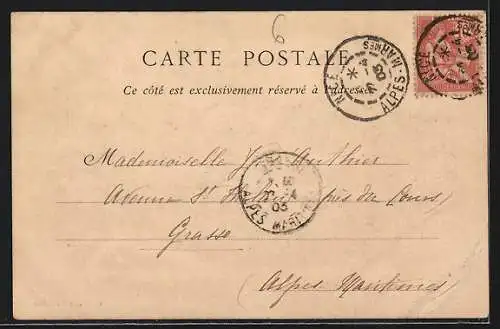 6
CARTE POSTALE
Ce côté est exclusivement réservé à l'adresse
NICE
ALPES-MARITMES
NICE
Mademoiselle Authier
Avenue St près du Cours
Grasse
(Alpes Maritimes)
GRASSE
03
ALPES MARITIMES